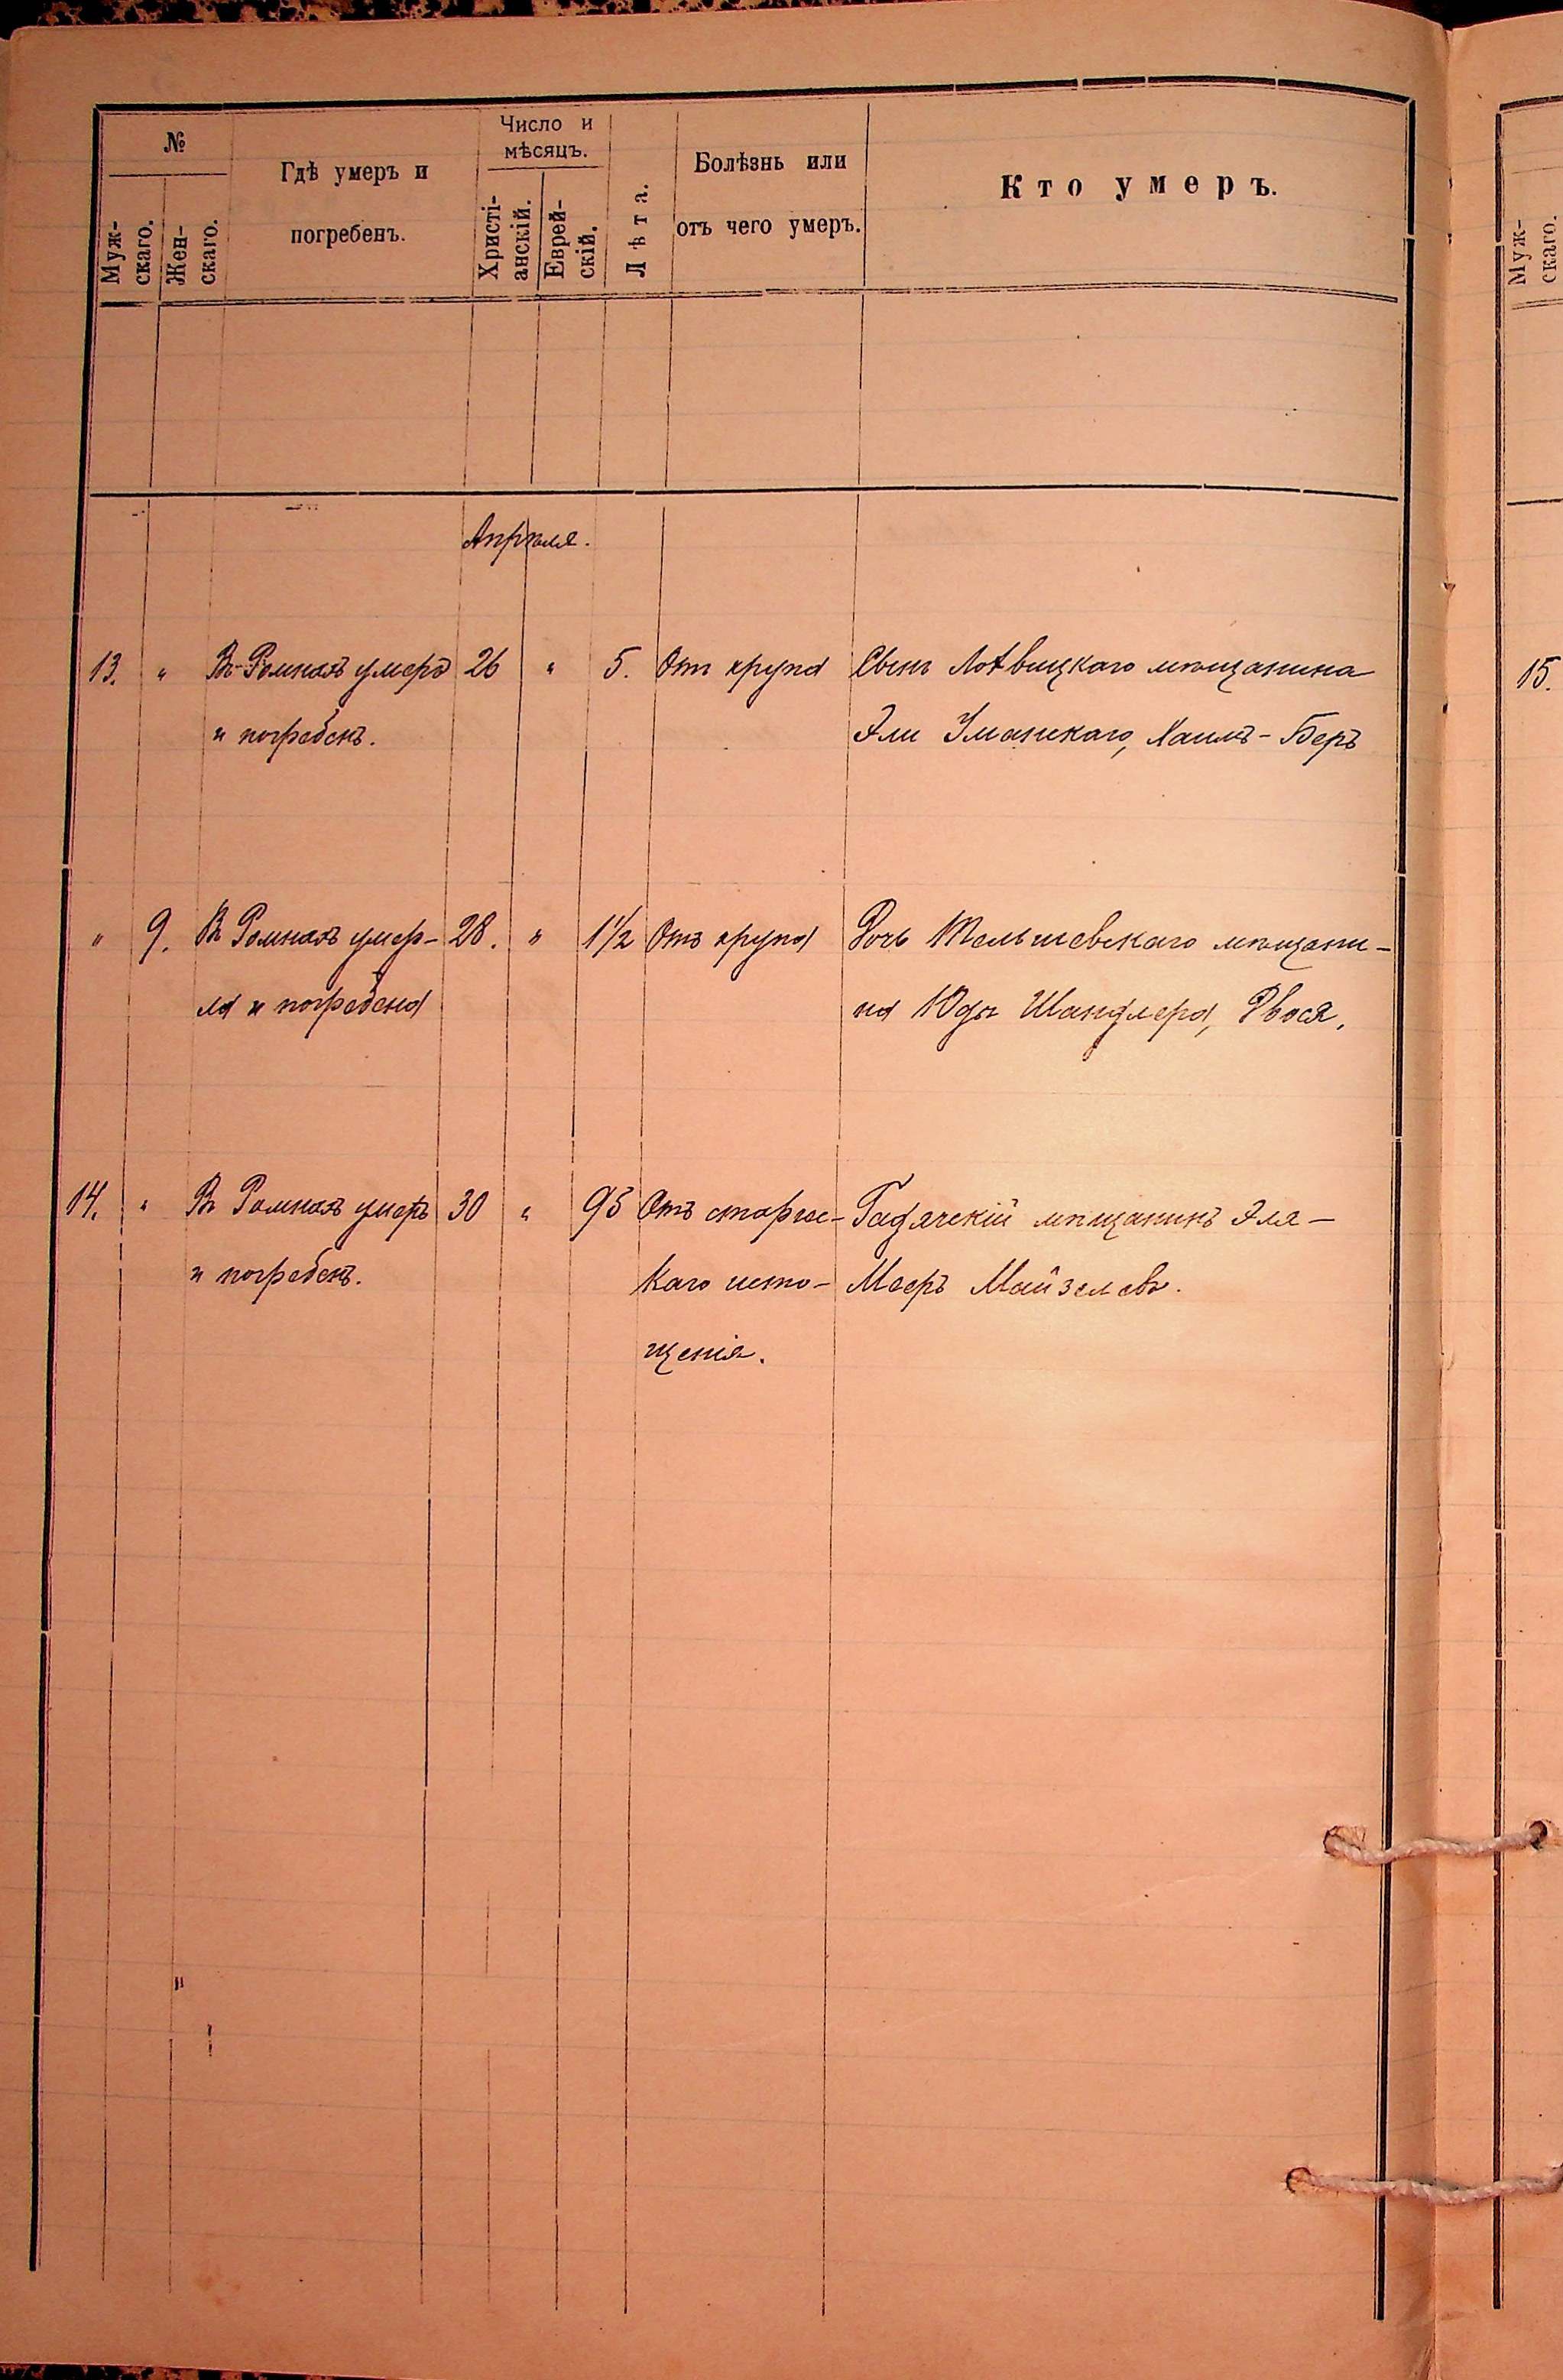 №
Муж-
скаго.
Жен-
скаго.
Гдѣ умеръ и
погребенъ.
Число и
мѣсяцъ.
Христі-
анскій.
Еврей-
скій.
Лѣта.
Болѣзнь или
отъ чего умеръ.
Кто умеръ.
Апрѣля.
13. " Въ Ромнахъ умеръ 26 " 5. Отъ крупа Сынъ Лохвицкаго мѣщанина
и погребенъ. Эли Уманскаго, Хаимъ-Беръ
" 9. Въ Ромнахъ умер- 28. " 1 1/2 Отъ крупа Дочь Тельшевскаго мѣщани-
ла и погребена на Юды Шандлера, Двося.
14. " Въ Ромнахъ умеръ 30 " 95 Отъ старчес- Гадячскій мѣщанинъ Эля-
и погребенъ. каго исто- Мееръ Майзелевъ.
щенія.
Муж-
скаго.
15.